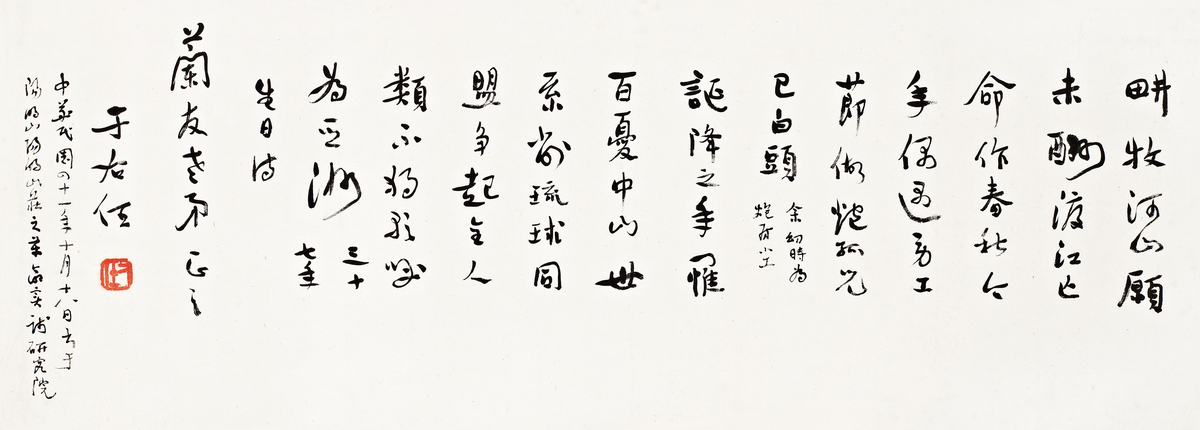 畊牧河山願
未酬渡江亡
命作春秋今
年偶過勞工
節做炮孤兒
已白頭
余幼時為
炮房小工
誕降之年罹
百憂中山世
系琉球同
盟爭起全人
類不獨
為亞洲
三十
七年
生日詩
蘭友老弟正之
于右任
中華民國四十一年十月十八日書于
陽明山陽明山莊之革命實踐研究院